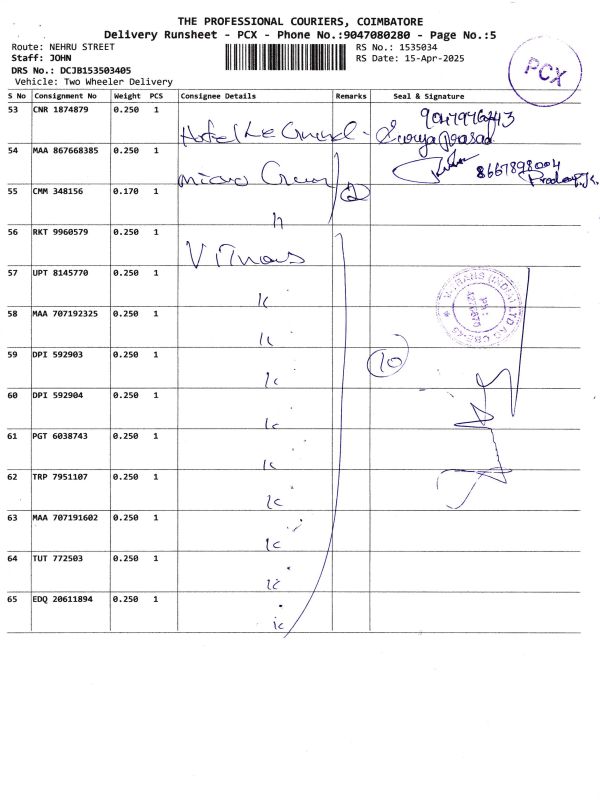 THE PROFESSIONAL COURIERS, COIMBATORE
Delivery Runsheet - PCX - Phone No.:9047080280 - Page No.:5
Route: NEHRU STREET
RS No.: 1535034
Staff: JOHN
RS Date: 15-Apr-2025
DRS No.: DCJB153503405
Vehicle: Two Wheeler Delivery
PCX
S No Consignment No Weight PCS Consignee Details Remarks Seal & Signature
53 CNR 1874879 0.250 1
Hotel Le Grand - Surya Prasad
54 MAA 867668385 0.250 1
micro 2 8667898004
55 CMM 348156 0.170 1
56 RKT 9960579 0.250 1
57 UPT 8145770 0.250 1
58 MAA 707192325 0.250 1
59 DPI 592903 0.250 1
10
60 DPI 592904 0.250 1
61 PGT 6038743 0.250 1
62 TRP 7951107 0.250 1
63 MAA 707191602 0.250 1
64 TUT 772503 0.250 1
65 EDQ 20611894 0.250 1